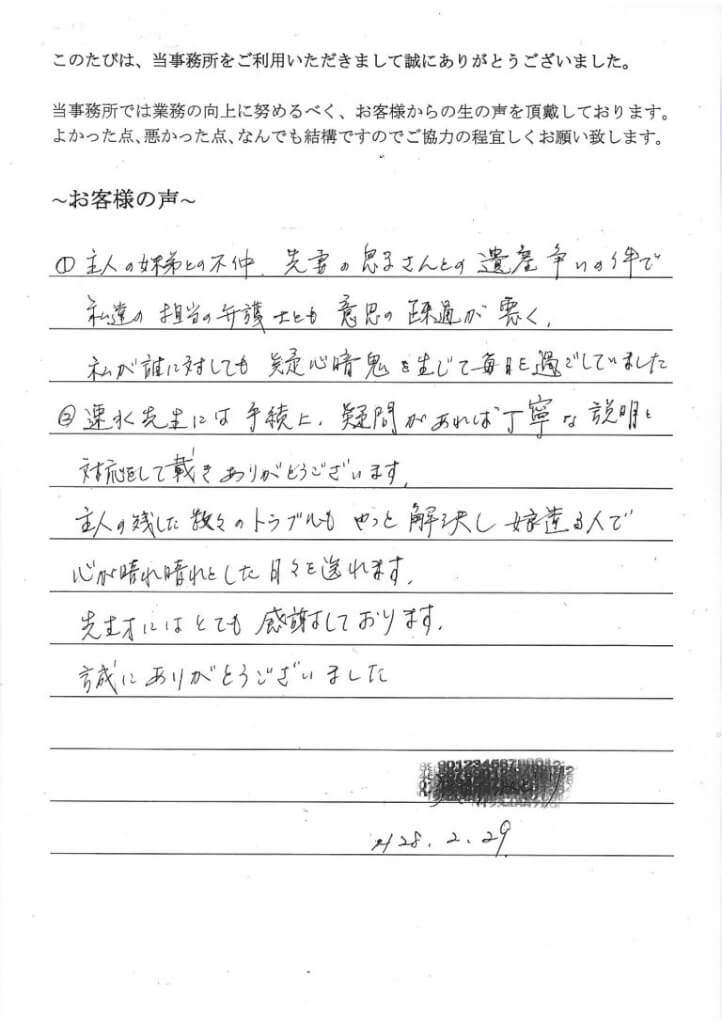 このたびは、当事務所をご利用いただきまして誠にありがとうございました。
当事務所では業務の向上に努めるべく、お客様からの生の声を頂戴しております。
よかった点、悪かった点、なんでも結構ですのでご協力の程宜しくお願い致します。
~お客様の声~
① 主人の姉弟との不仲、先妻の息子さんとの遺産争いの件で
私達の担当の弁護士とも意思の疎通が悪く、
私が誰に対しても疑心暗鬼を生じて毎日を過ごしていました
② 速水先生には手続上、疑問があれば丁寧な説明と
対応をして戴きありがとうございます。
主人の残した数々のトラブルもやっと解決し 娘達3人で
心が晴れ晴れとした日々を送れます。
先生方にはとても感謝しております。
誠にありがとうございました
H28.2.29